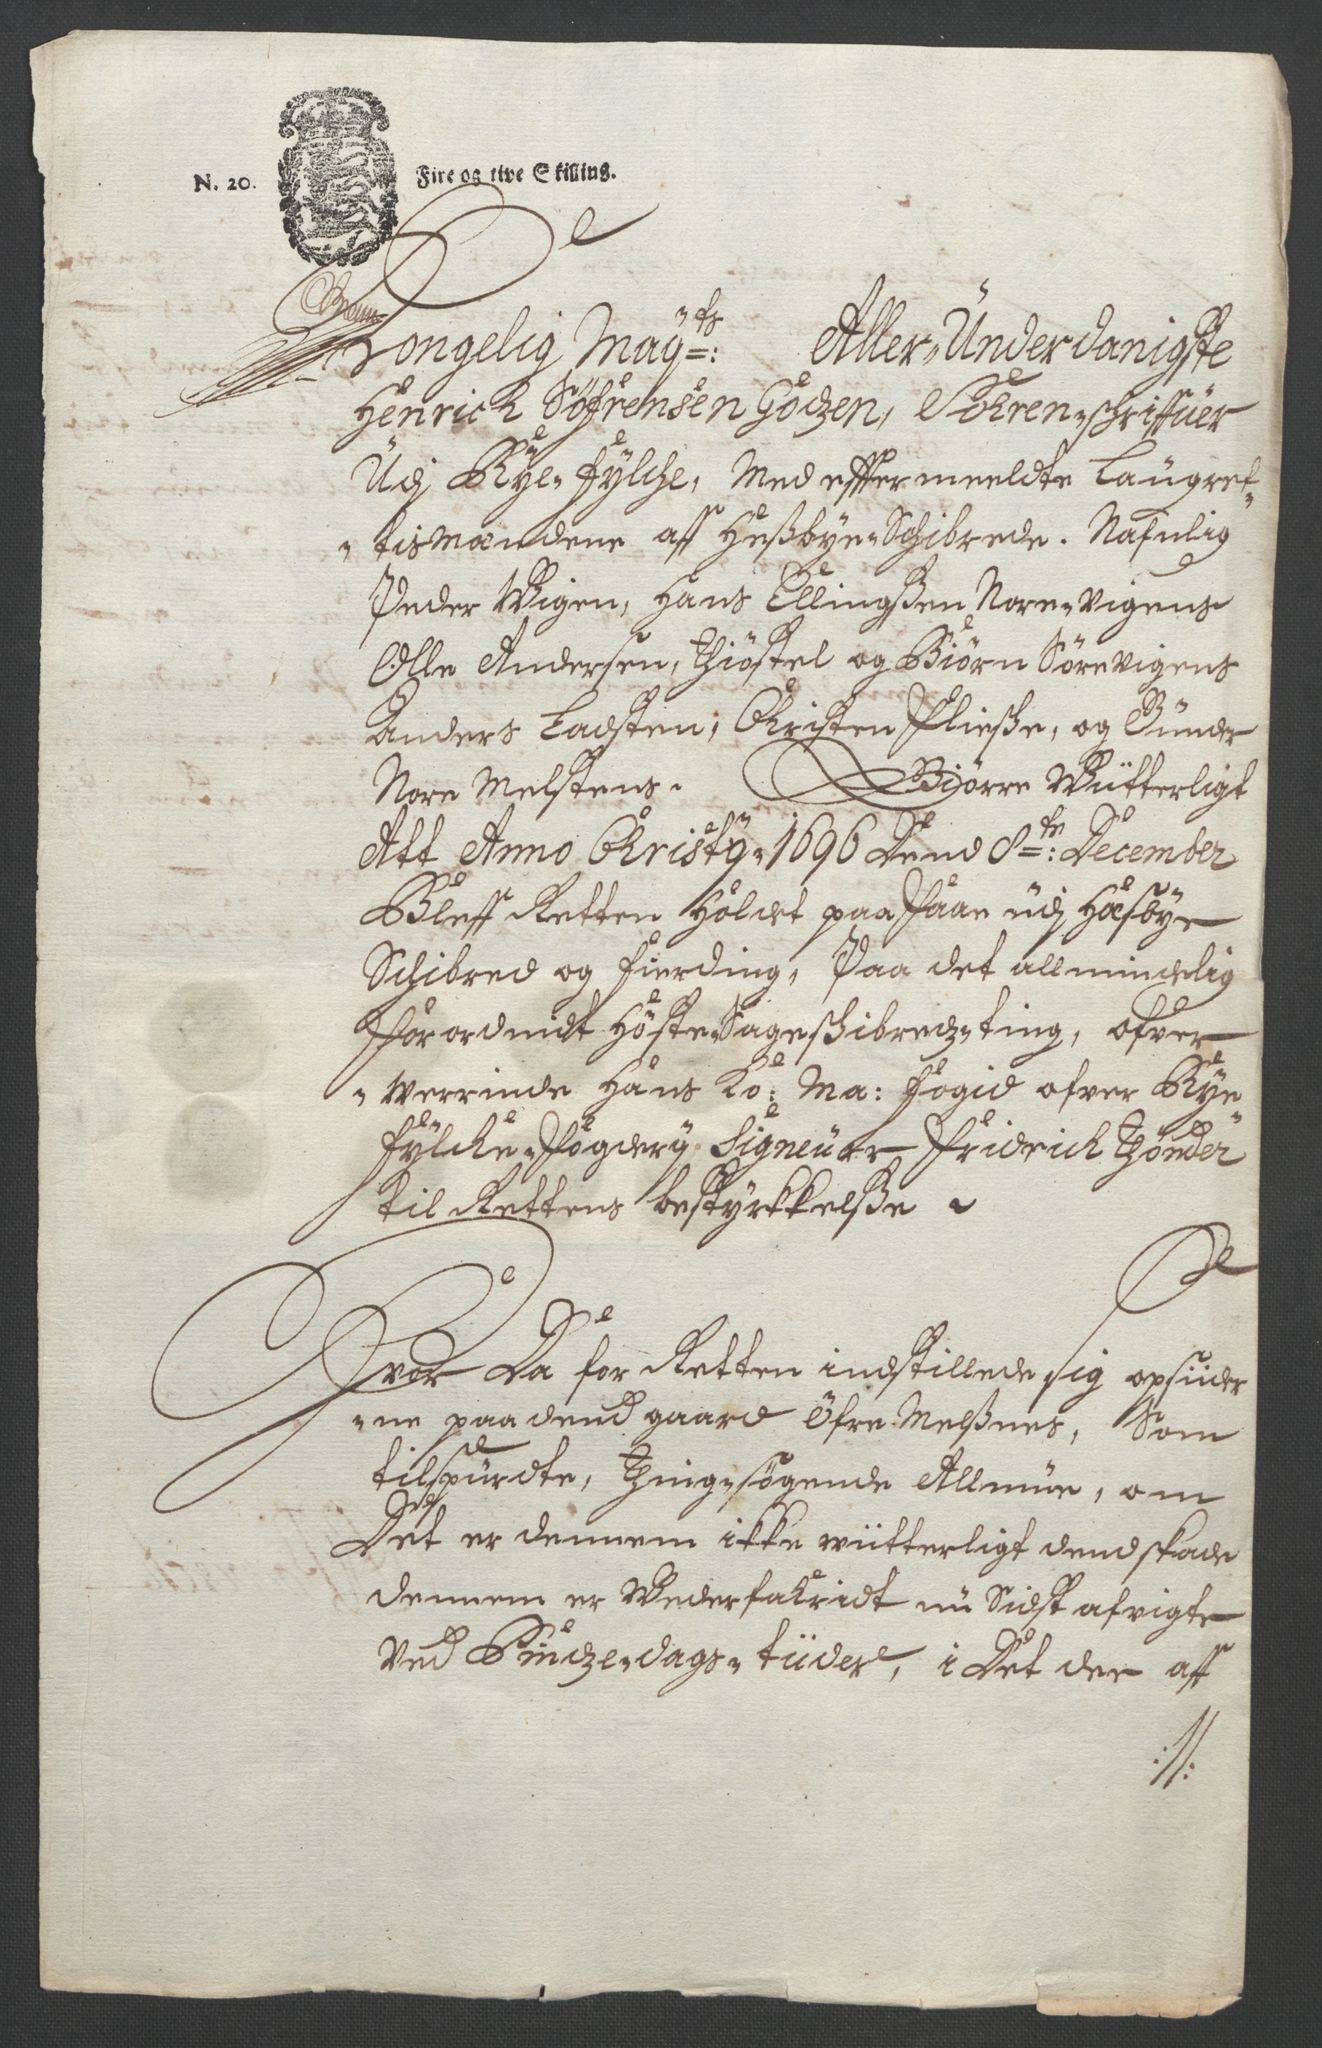 N. 20. Fire og tive Skilling.
Kongelig Maÿ=ts: Aller„Ünderdanigste
Henrich Söfrensen Godzen, Sohren„schriffuer
Udj Rye„fylche, Med effter meeldte Laugret„
„tismændene aff Heßbye„Schibrede. Nafnlig
Peder Wigen, Hans Ellingßen Nore„vigens
Olle Andersen, Thiöstel og Biörn Sörevigens
Anders Ladsten, Christen Fließe, og Gunder
Nore Melstens. Giörre Witterligt
Att Anno Christÿ„1696 Dend 8=tn: December
Bleff Retten Holdet paa Faae udj Hæsbye
Schibred og fierding, Paa det allmindelig
for ordnidt Höste„Sageskibredz„ting, ofver
„werrinde Hans Ko: Ma: fogid ofver Rye
fylcke„fögderÿ Signeur Fridrich Thönder
til Rettens bestyrkkelße
Hvor Da for Retten indstillede sig opsider
„ne paa dend gaard Öfre Melßnes, Som
tilspurdte, Thing„søgende Allmue, om
Det er dennem ikke witterligt dend skade
dennem er Wederfahridt nu Sidst afvigte
Ved Pindze„dags„tiider, i Det der aff
://: